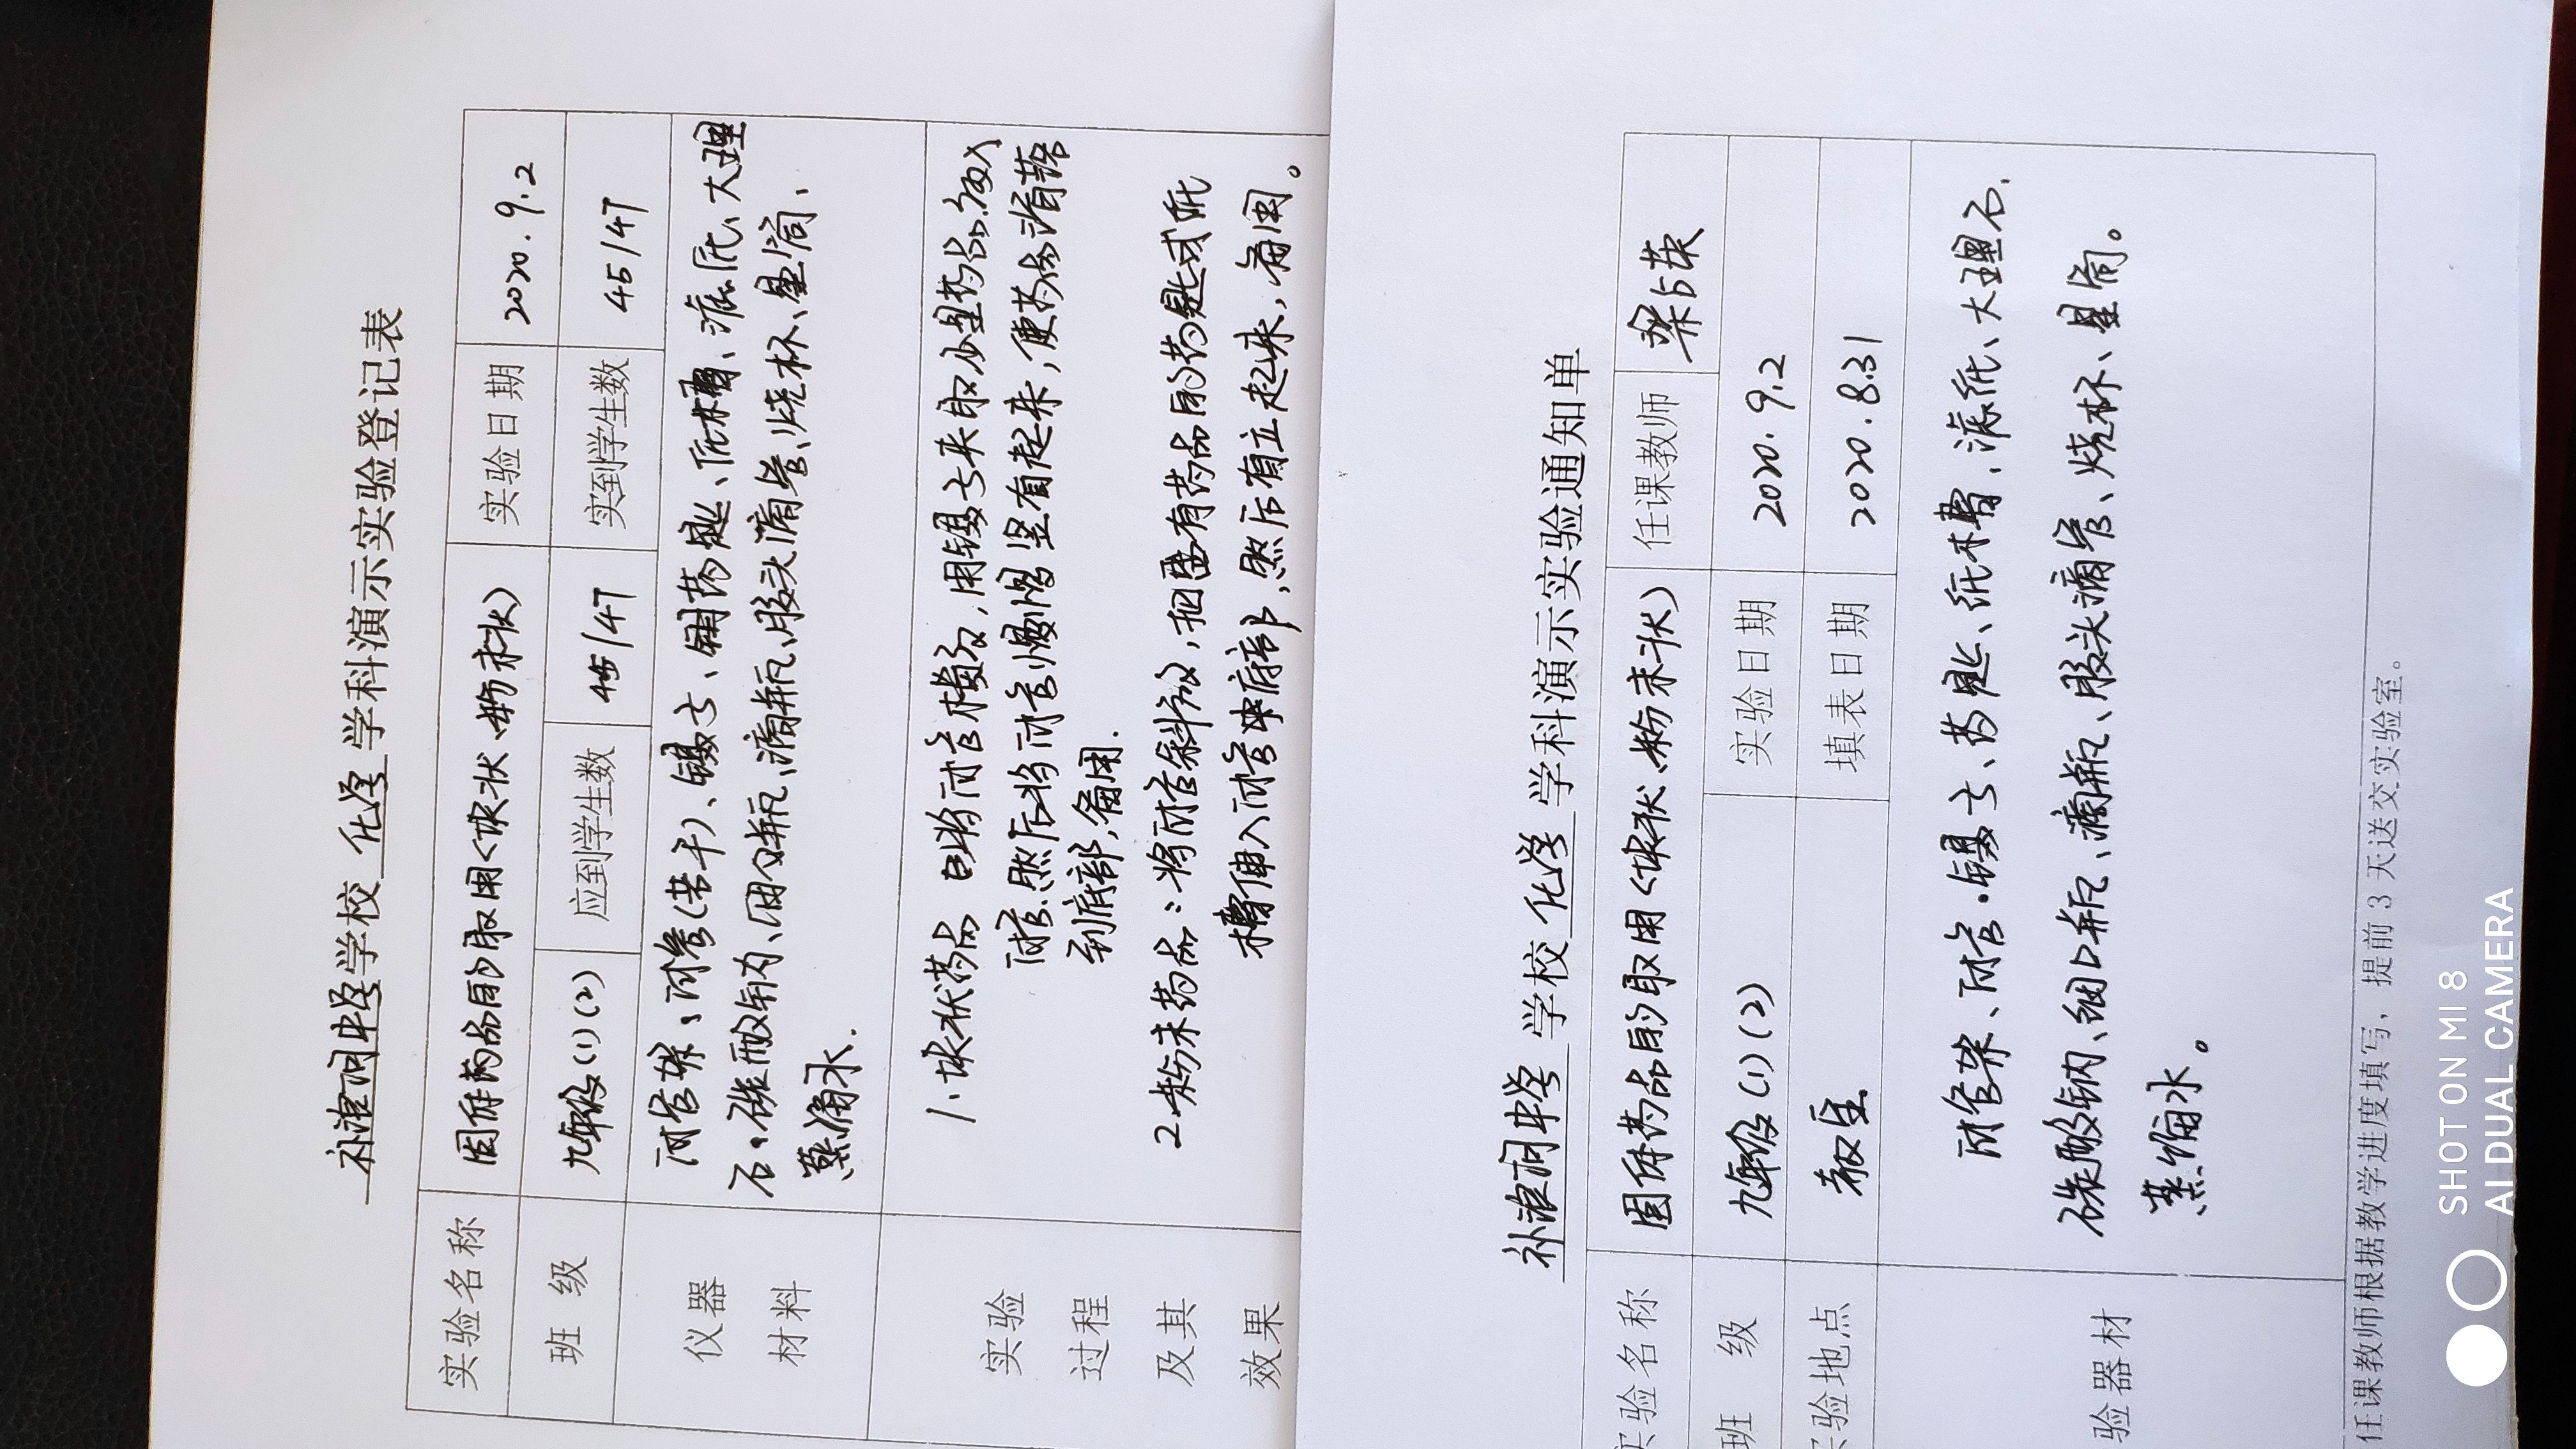 补浪河中学学校 化学 学科演示实验登记表
实验名称 固体药品的取用(块状、粉末状) 实验日期 2020.9.2
班级 九年级(1)(2) 应到学生数 45/47 实到学生数 45/47
仪器 试管架、试管(若干)、镊子、钥药匙、纸槽、滤纸、大理
材料 石、碳酸钠、细口瓶、滴瓶、胶头滴管、烧杯、量筒、
蒸馏水.
实验 1.块状药品 口将试管横放,用镊子夹取少量药品放入
过程 试管.然后将试管慢慢竖直起来,使药品滑落
到底部,备用.
及其 2.粉末药品:将试管斜放,把盛有药品的药匙或纸
效果 槽伸入试管中底部,然后直立起来,备用。
补浪河中学 学校 化学 学科演示实验通知单
验名称 固体药品的取用(块状、粉末状) 任课教师 梁占荣
班级 九年级(1)(2) 实验日期 2020.9.2
验地点 教室 填表日期 2020.8.31
验器材 试管架、试管.镊子、药匙、纸槽、滤纸、大理石、
碳酸钠、细口瓶、滴瓶、胶头滴管、烧杯、量筒。
蒸馏水。
任课教师根据教学进度填写，提前3天送交实验室。
SHOT ON MI 8
AI DUAL CAMERA